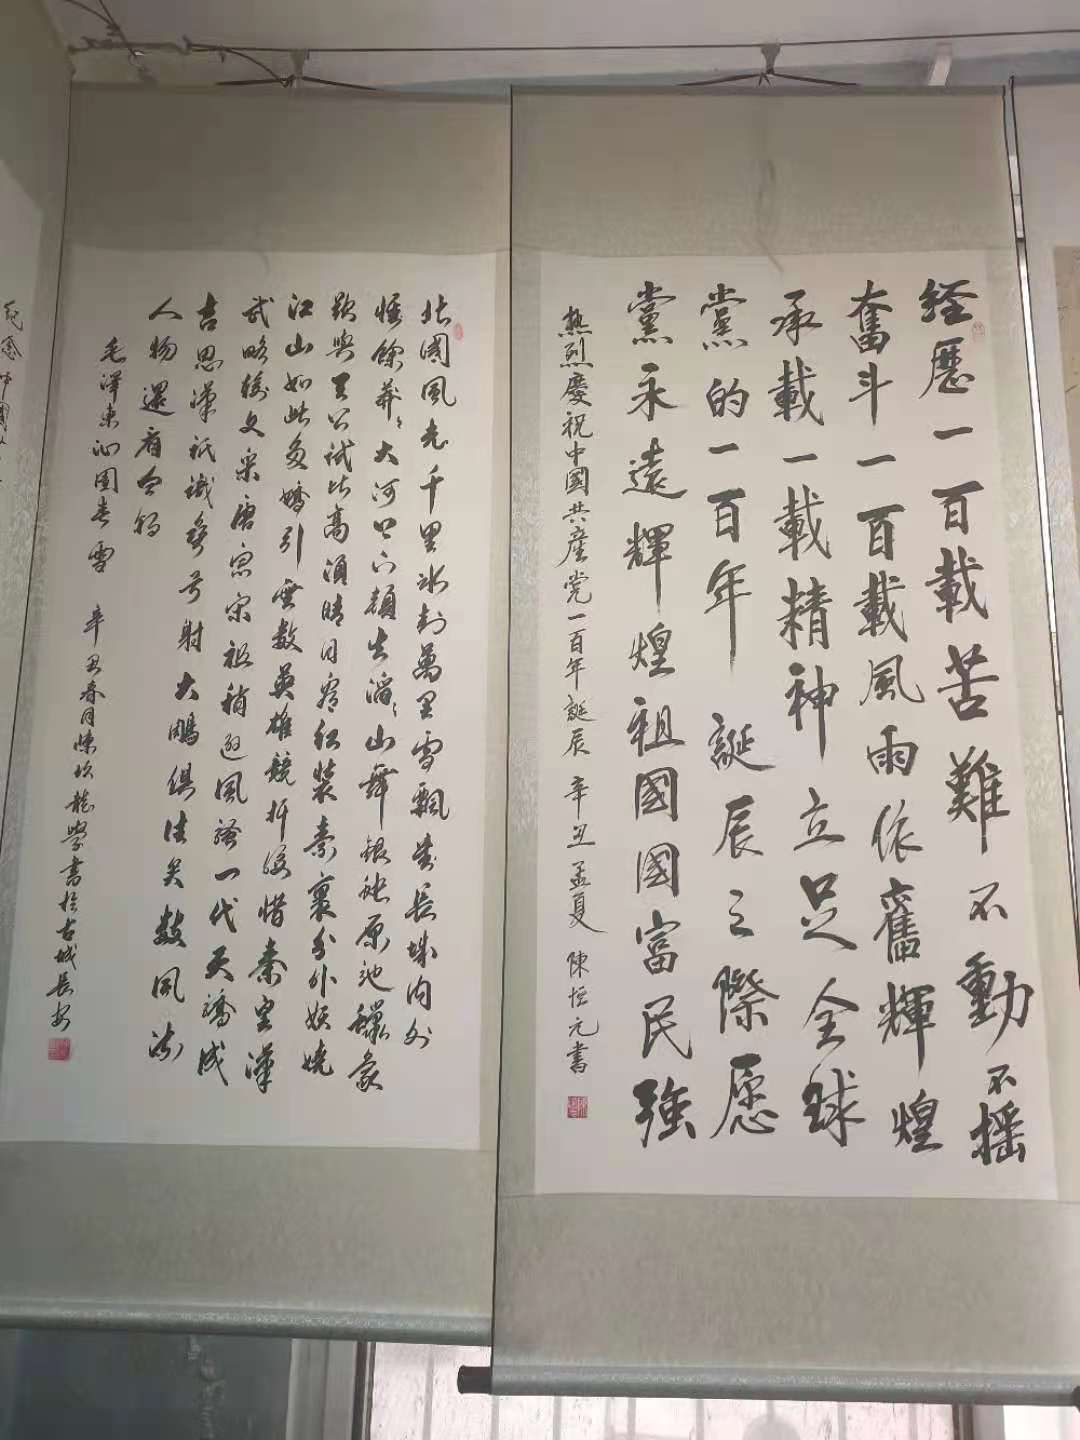 经歷一百載苦難不動不摇
奮斗一百載風雨依舊輝煌
承載一載精神立足全球
黨的一百年誕辰之際愿
黨永遠輝煌祖國國富民強
热烈慶祝中國共産党一百年誕辰 辛丑孟夏 陳恒元書
北國風光千里冰封萬里雪飄望長城内外
惟餘莽〻大河上下頓失滔〻山舞銀蛇原馳蠟象
欲與天公試比高須晴日看紅裝素裹分外妖嬈
江山如此多嬌引無數英雄競折腰惜秦皇漢
武略輸文采唐宗宋祖稍遜風騷一代天驕成
吉思漢祇識彎弓射大鵰俱往矣數風流
人物還看今朝
毛澤東沁園春雪 辛丑春月陳龍學書於古城長安